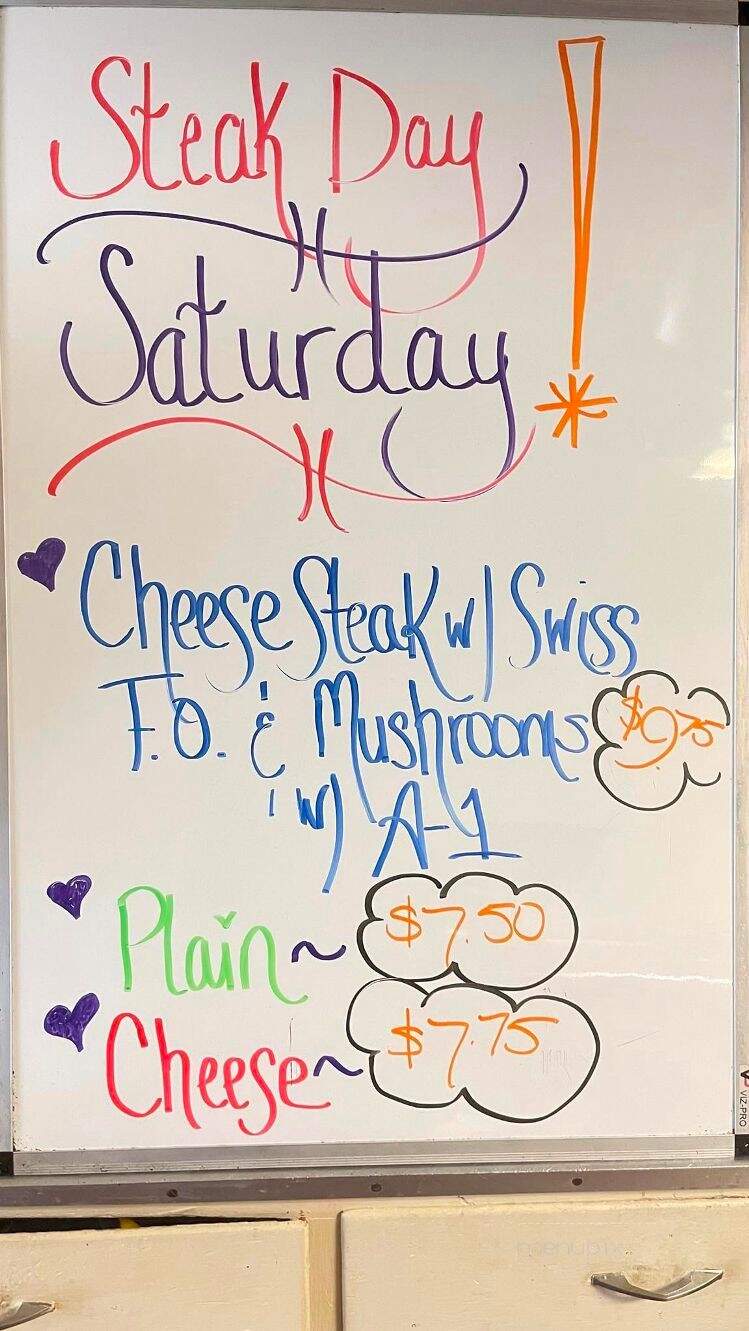 Steak Day !
Saturday
Cheese Steak w/ Swiss
F.O. & Mushrooms $9.75
w/ A-1
Plain ~ $7.50
Cheese ~ $7.75
VIZ-PRO
menupix